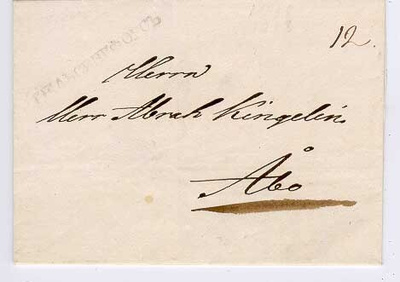 12.
Herrn
Herr Abrah Kingelin.
Åbo